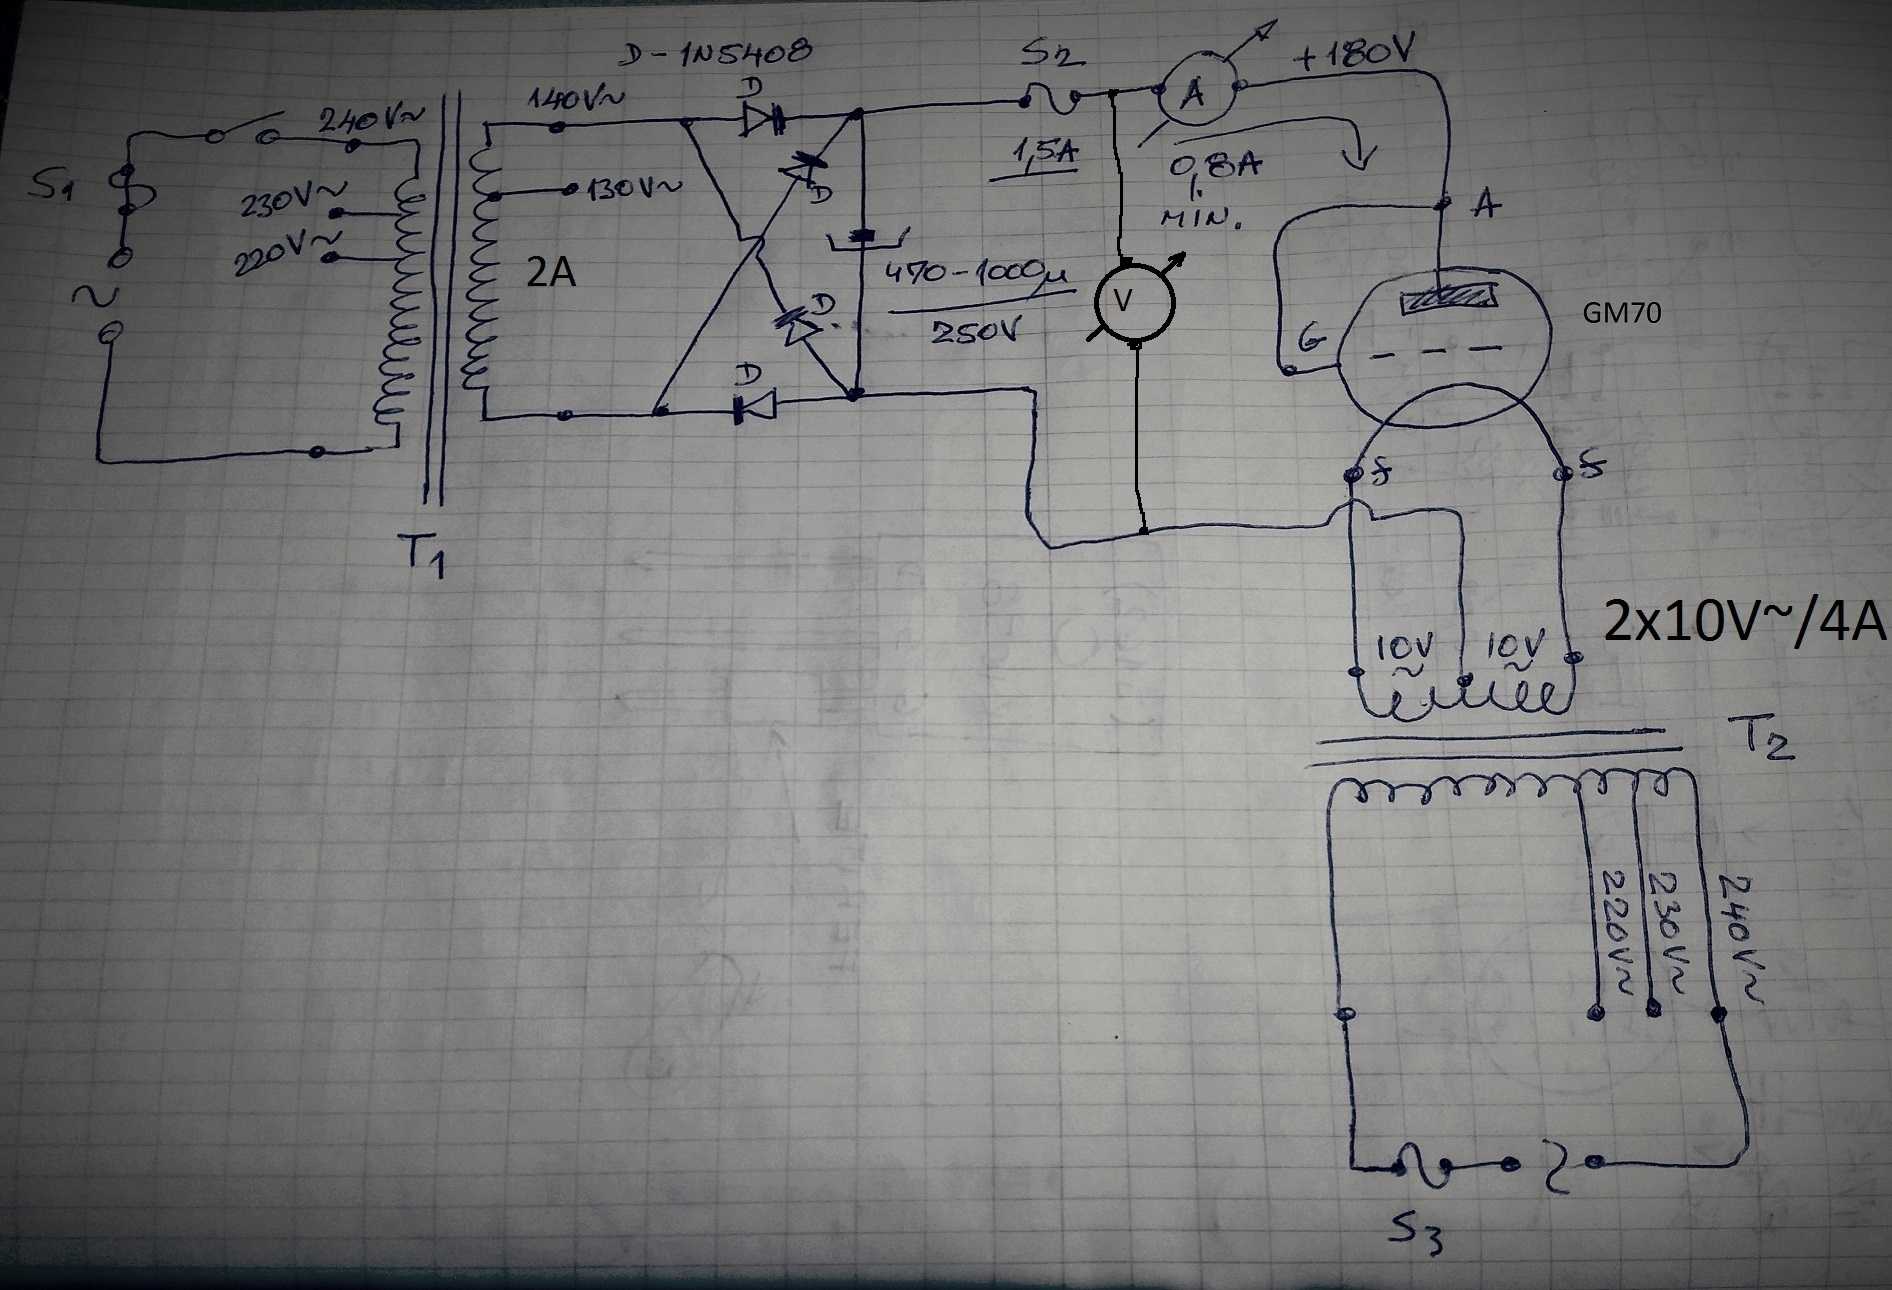 D-1N5408
S2
+180V
A
240V~
140V~
D
1,5A
0,8A
MIN.
S1
230V~
130V~
D
A
220V~
2A
470-1000µ
250V
V
D
GM70
G
~
D
f
f
T1
10V
~
10V
~
2x10V~/4A
T2
220V~
230V~
240V~
~
S3